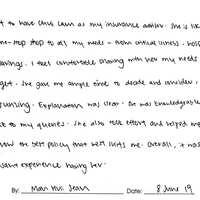 t to have Chris Lawn as my insurance advisor. She is lik
ne-stop shop to all my needs - from critical illness, hosp
avings. I feel comfortable sharing with her my needs
get. She gave me ample time to decide and consider,
suring. Explanation was clear. She was knowledgeable
t to my queries. She also took effort and helped me
how the best policy that best suits me. Overall, it was
sant experience having her.
By: Man Hui Jean Date: 8 June 19